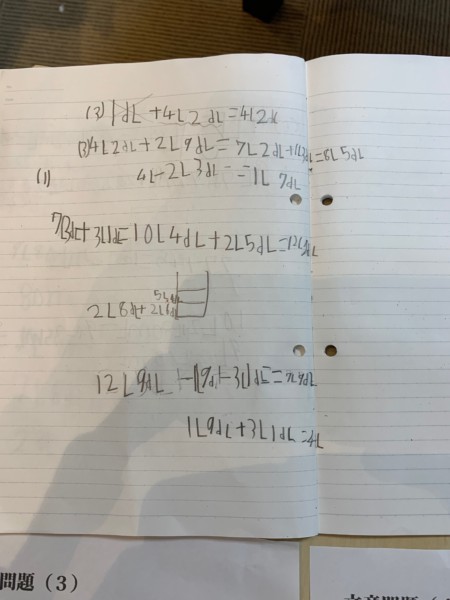 (3) 1dL+4L2dL=4L2
(3)4L2dL+2L9dL=7L2dL+1L3dL=8L5dL
(1)
4L-2L3dL=1L7dL
7L3dL+3L1dL=10L4dL+2L5dL=12L9dL
2L8dL+2L
12L9dL-1L9dL-3L1dL=7L9dL
1L9dL+3L1dL=4L
問題（3）